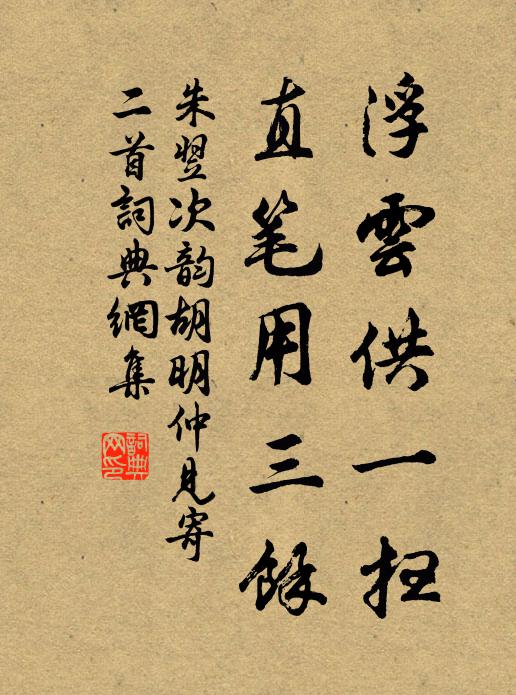 浮雲供一枉
直笔用三餘
朱翌次韵胡明仲見寄
二首詞典網集
詞典
网印